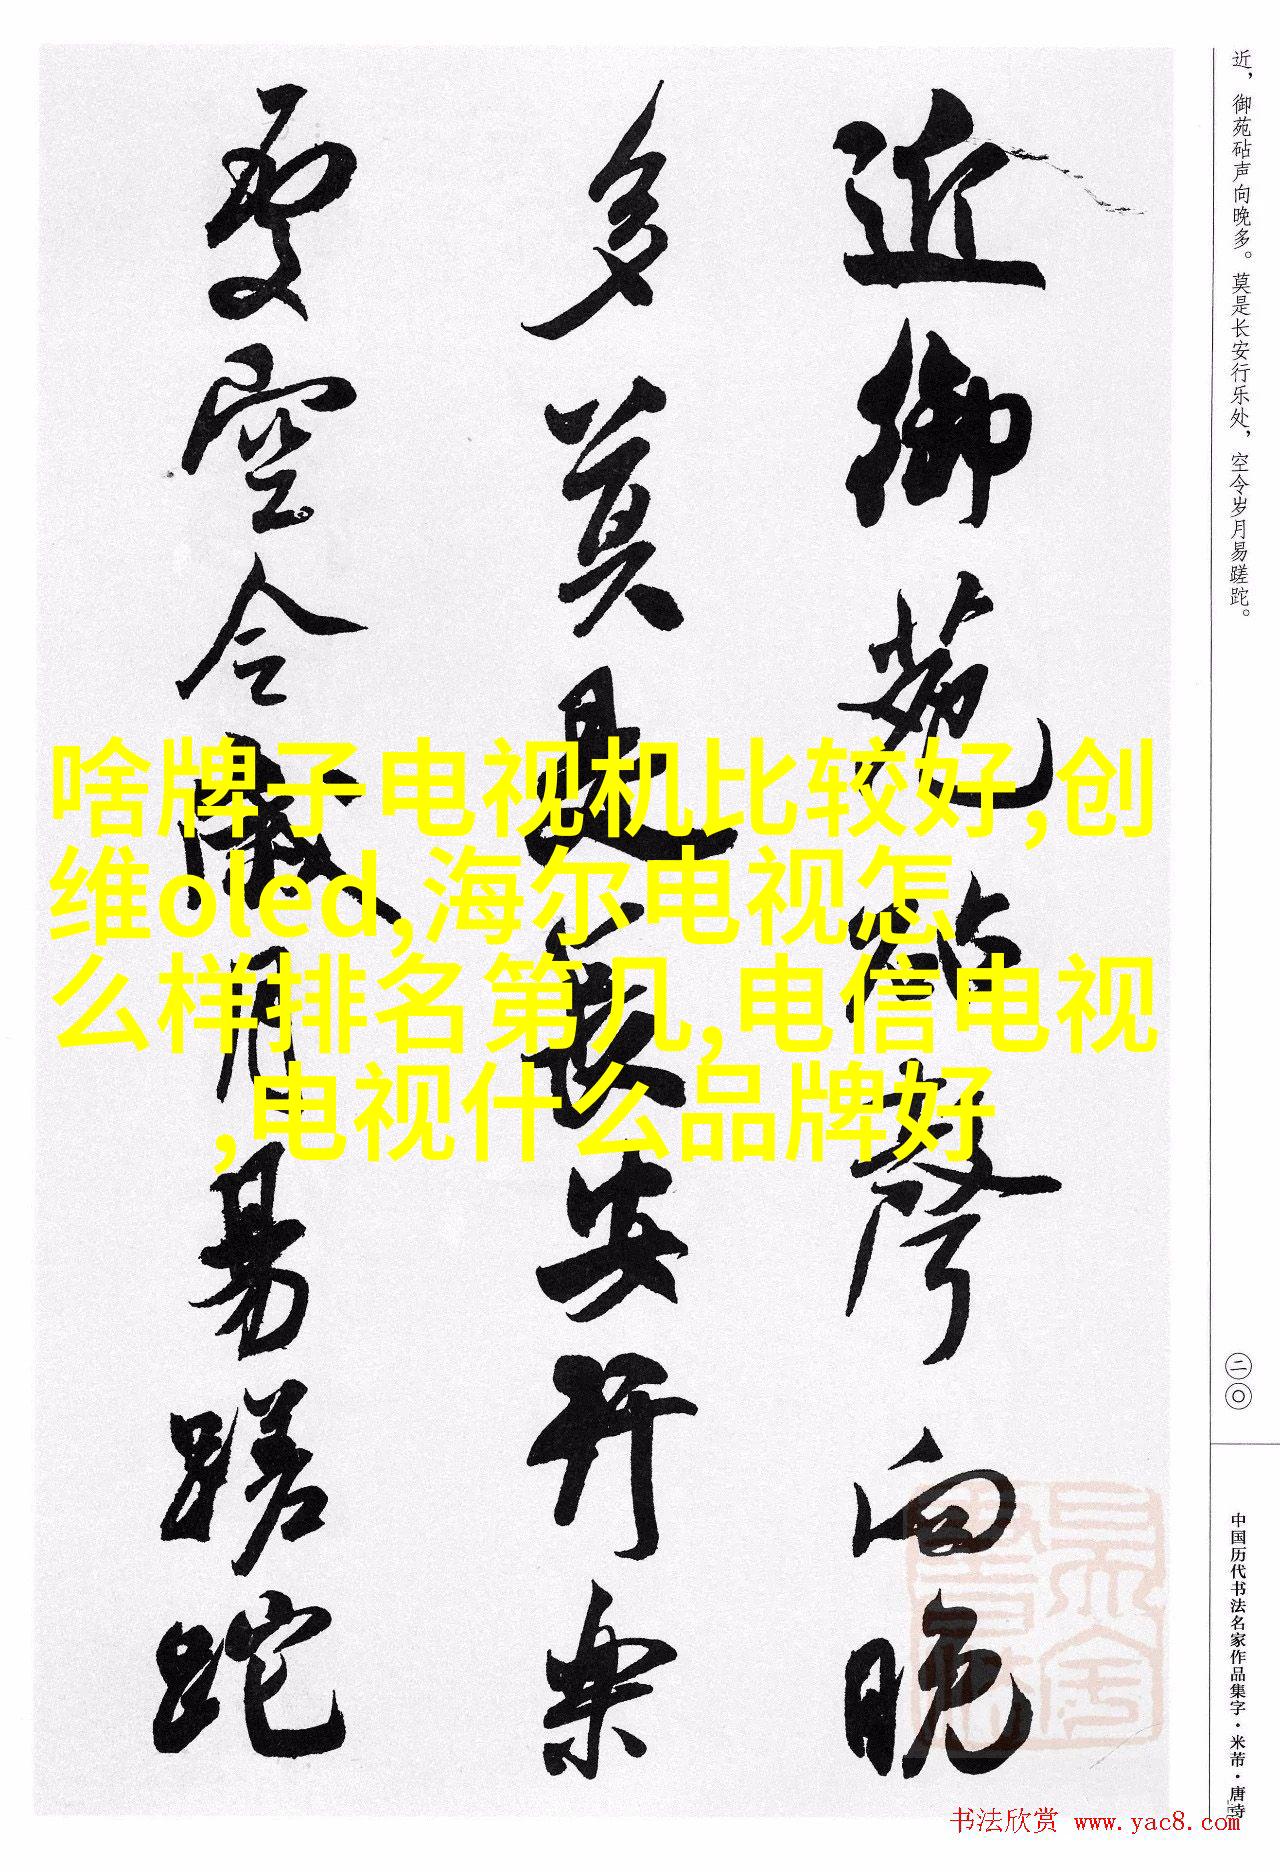 近，御苑砧声向晚多。莫是长安行乐处，空令岁月易蹉跎。
近御苑砧声向晚
多莫是长安行樂
处空令岁月易蹉跎
啥牌子电视机比较好,创
维oled,海尔电视怎
么样排名第几,电信电视
,电视什么品牌好
二〇
中国历代书法名家作品集字·米芾·唐诗
书法欣赏 www.yac8.com